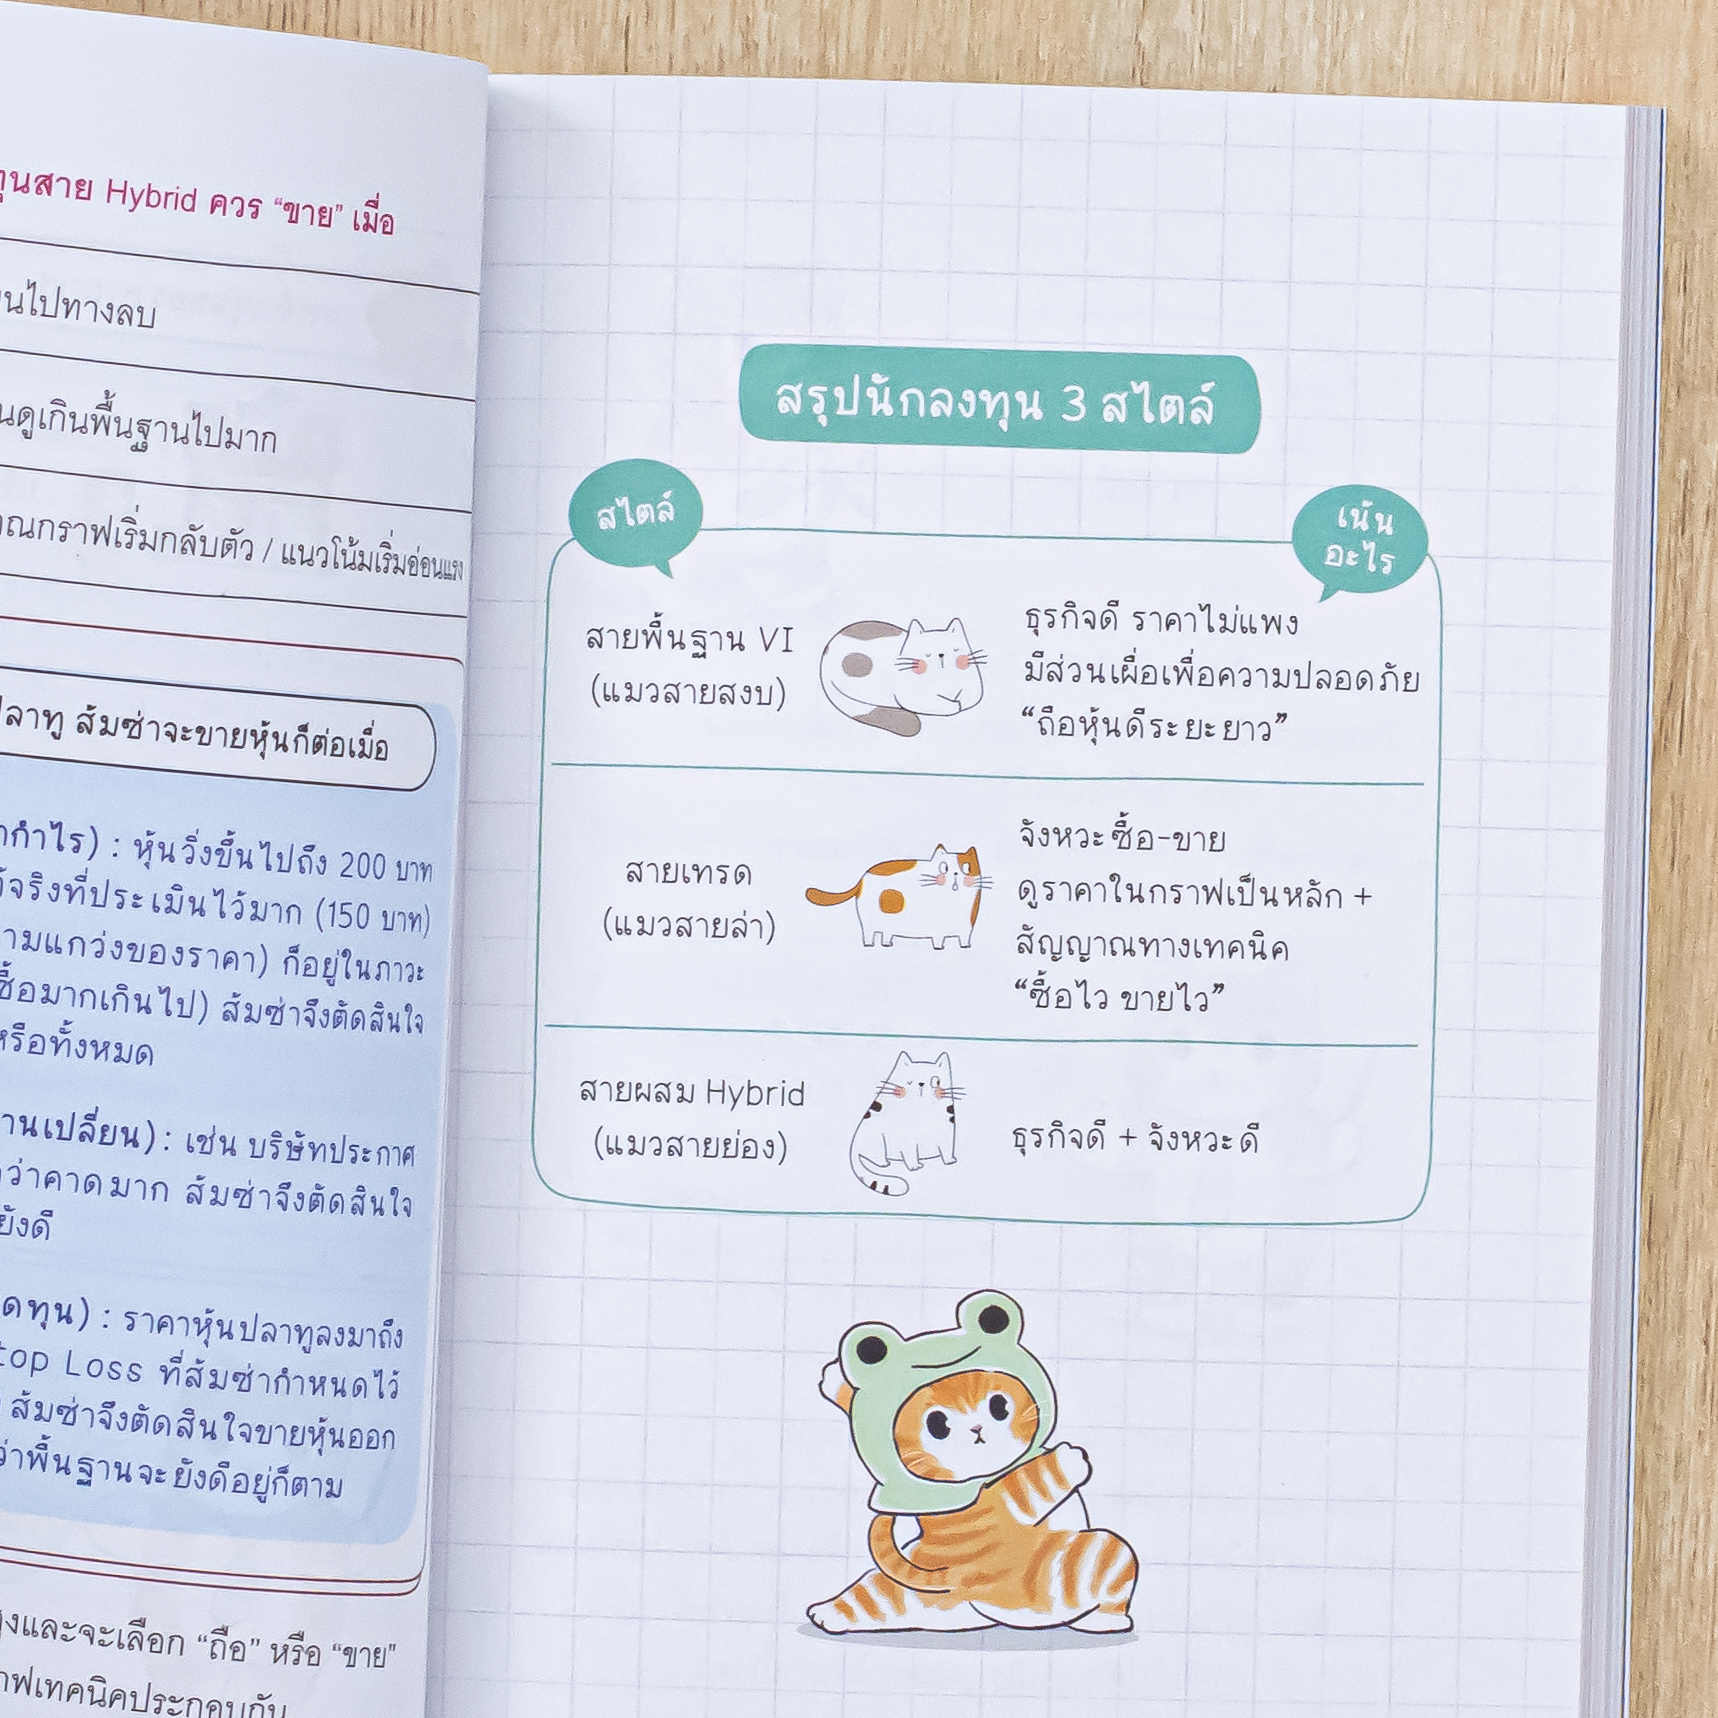 Hybrid ควร “ขาย” เมื่อ
ไปทางลบ
ดูเกินพื้นฐานไปมาก
กราฟเริ่มกลับตัว / แนวโน้มเริ่มอ่อนแรง
ปลาทู ส้มซ่าจะขายหุ้นก็ต่อเมื่อ
กำไร) : หุ้นวิ่งขึ้นไปถึง 200 บาท
จริงที่ประเมินไว้มาก (150 บาท)
ามแกว่งของราคา) ก็อยู่ในภาวะ
ซื้อมากเกินไป) ส้มซ่าจึงตัดสินใจ
หรือทั้งหมด
านเปลี่ยน) : เช่น บริษัทประกาศ
ว่าคาดมาก ส้มซ่าจึงตัดสินใจ
ยังดี
ดทุน) : ราคาหุ้นปลาทูลงมาถึง
top Loss ที่ส้มซ่ากำหนดไว้
ส้มซ่าจึงตัดสินใจขายหุ้นออก
ว่าพื้นฐานจะยังดีอยู่ก็ตาม
และจะเลือก “ถือ” หรือ “ขาย”
าฟเทคนิคประกอบกัน
สรุปนักลงทุน 3 สไตล์
สไตล์
เน้น
อะไร
สายพื้นฐาน VI
(แมวสายสงบ)
ธุรกิจดี ราคาไม่แพง
มีส่วนเผื่อเพื่อความปลอดภัย
“ถือหุ้นดีระยะยาว”
สายเทรด
(แมวสายล่า)
จังหวะซื้อ-ขาย
ดูราคาในกราฟเป็นหลัก +
สัญญาณทางเทคนิค
“ซื้อไว ขายไว”
สายผสม Hybrid
(แมวสายย่อง)
ธุรกิจดี + จังหวะดี